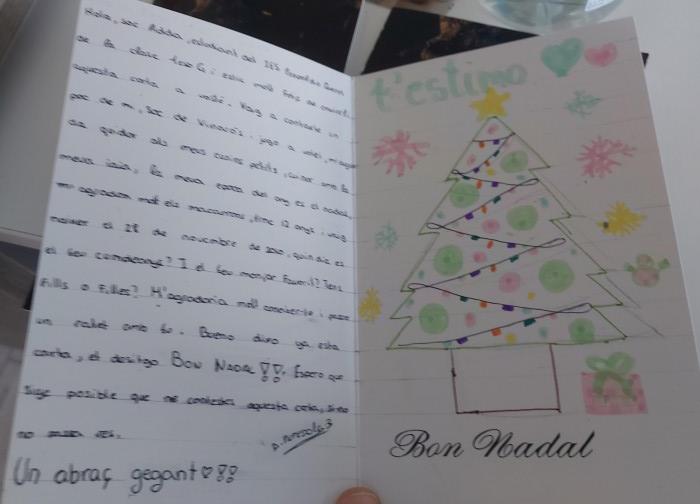 Hola, soc Addia, estudiant del IES
de la clase 1eso G, i estic molt feliç de
aquesta carta a vostè. Vaig a contarte un
poc de mi, soc de Vinaròs, jugo a volei, m'agra
da quidar als meus cusins petits, cuinar amb la
meva iaia, la meva epoca del any es el nadal,
m'agradan molt els macarrons, tinc 12 anys i vaig
naixer el 28 de novembre de 2010, quin dia es
el seu cumpleanys? I el seu menjar favorit? Tens
Fills o Filles? M'agradaria molt coneixer-te i passar
un ratet amb tu. Bueno dino ya esta
carta, et desitgo BON NADAL!! Espero que
sige posible que me contestes aquesta carta, sino
no passa res.
Un abraç gegant♡!!
t'estimo
Bon Nadal